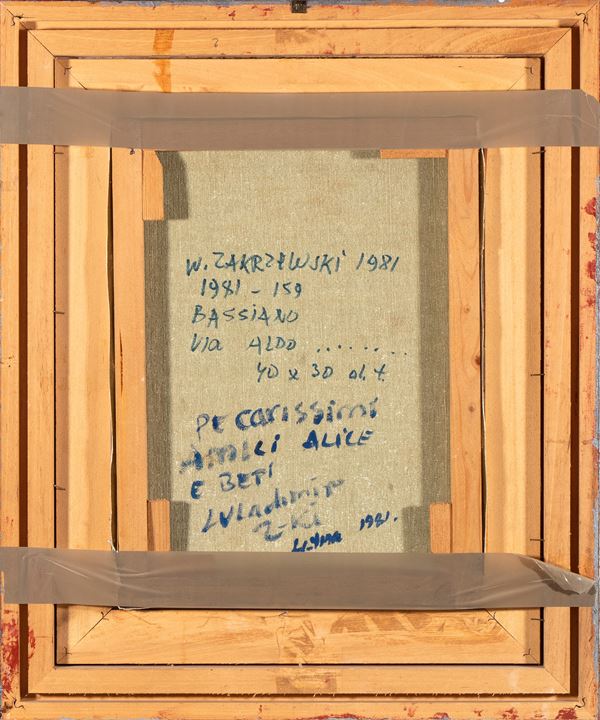 W. ZAKRZEWSKI 1981
1981 - 159
BASSIANO
Via ALDO ........
40 x 30 ol. t.
Pe carissimi
AMICI ALICE
E BETI
WLadimir
Z-ki
1981.